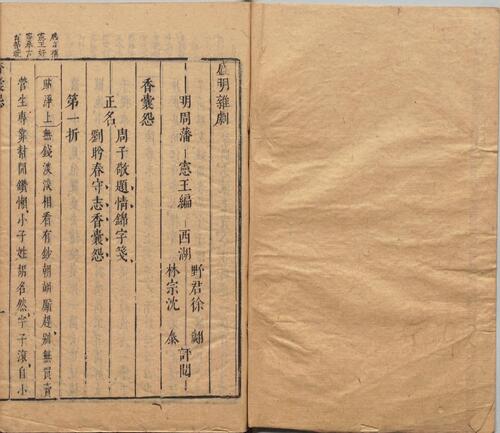 盛明雜劇
明周藩
憲王編
西湖
野君徐翽
林宗沈泰
評閱
香囊怨
正名
周子敬題情錦字箋
劉盼春守志香囊怨
第一折
貼淨上無錢淡淡相看有鈔朝朝廝趕別無買賣
營生專靠幫閒鑽懶小子姓胡名然字子滾自小
香囊怨